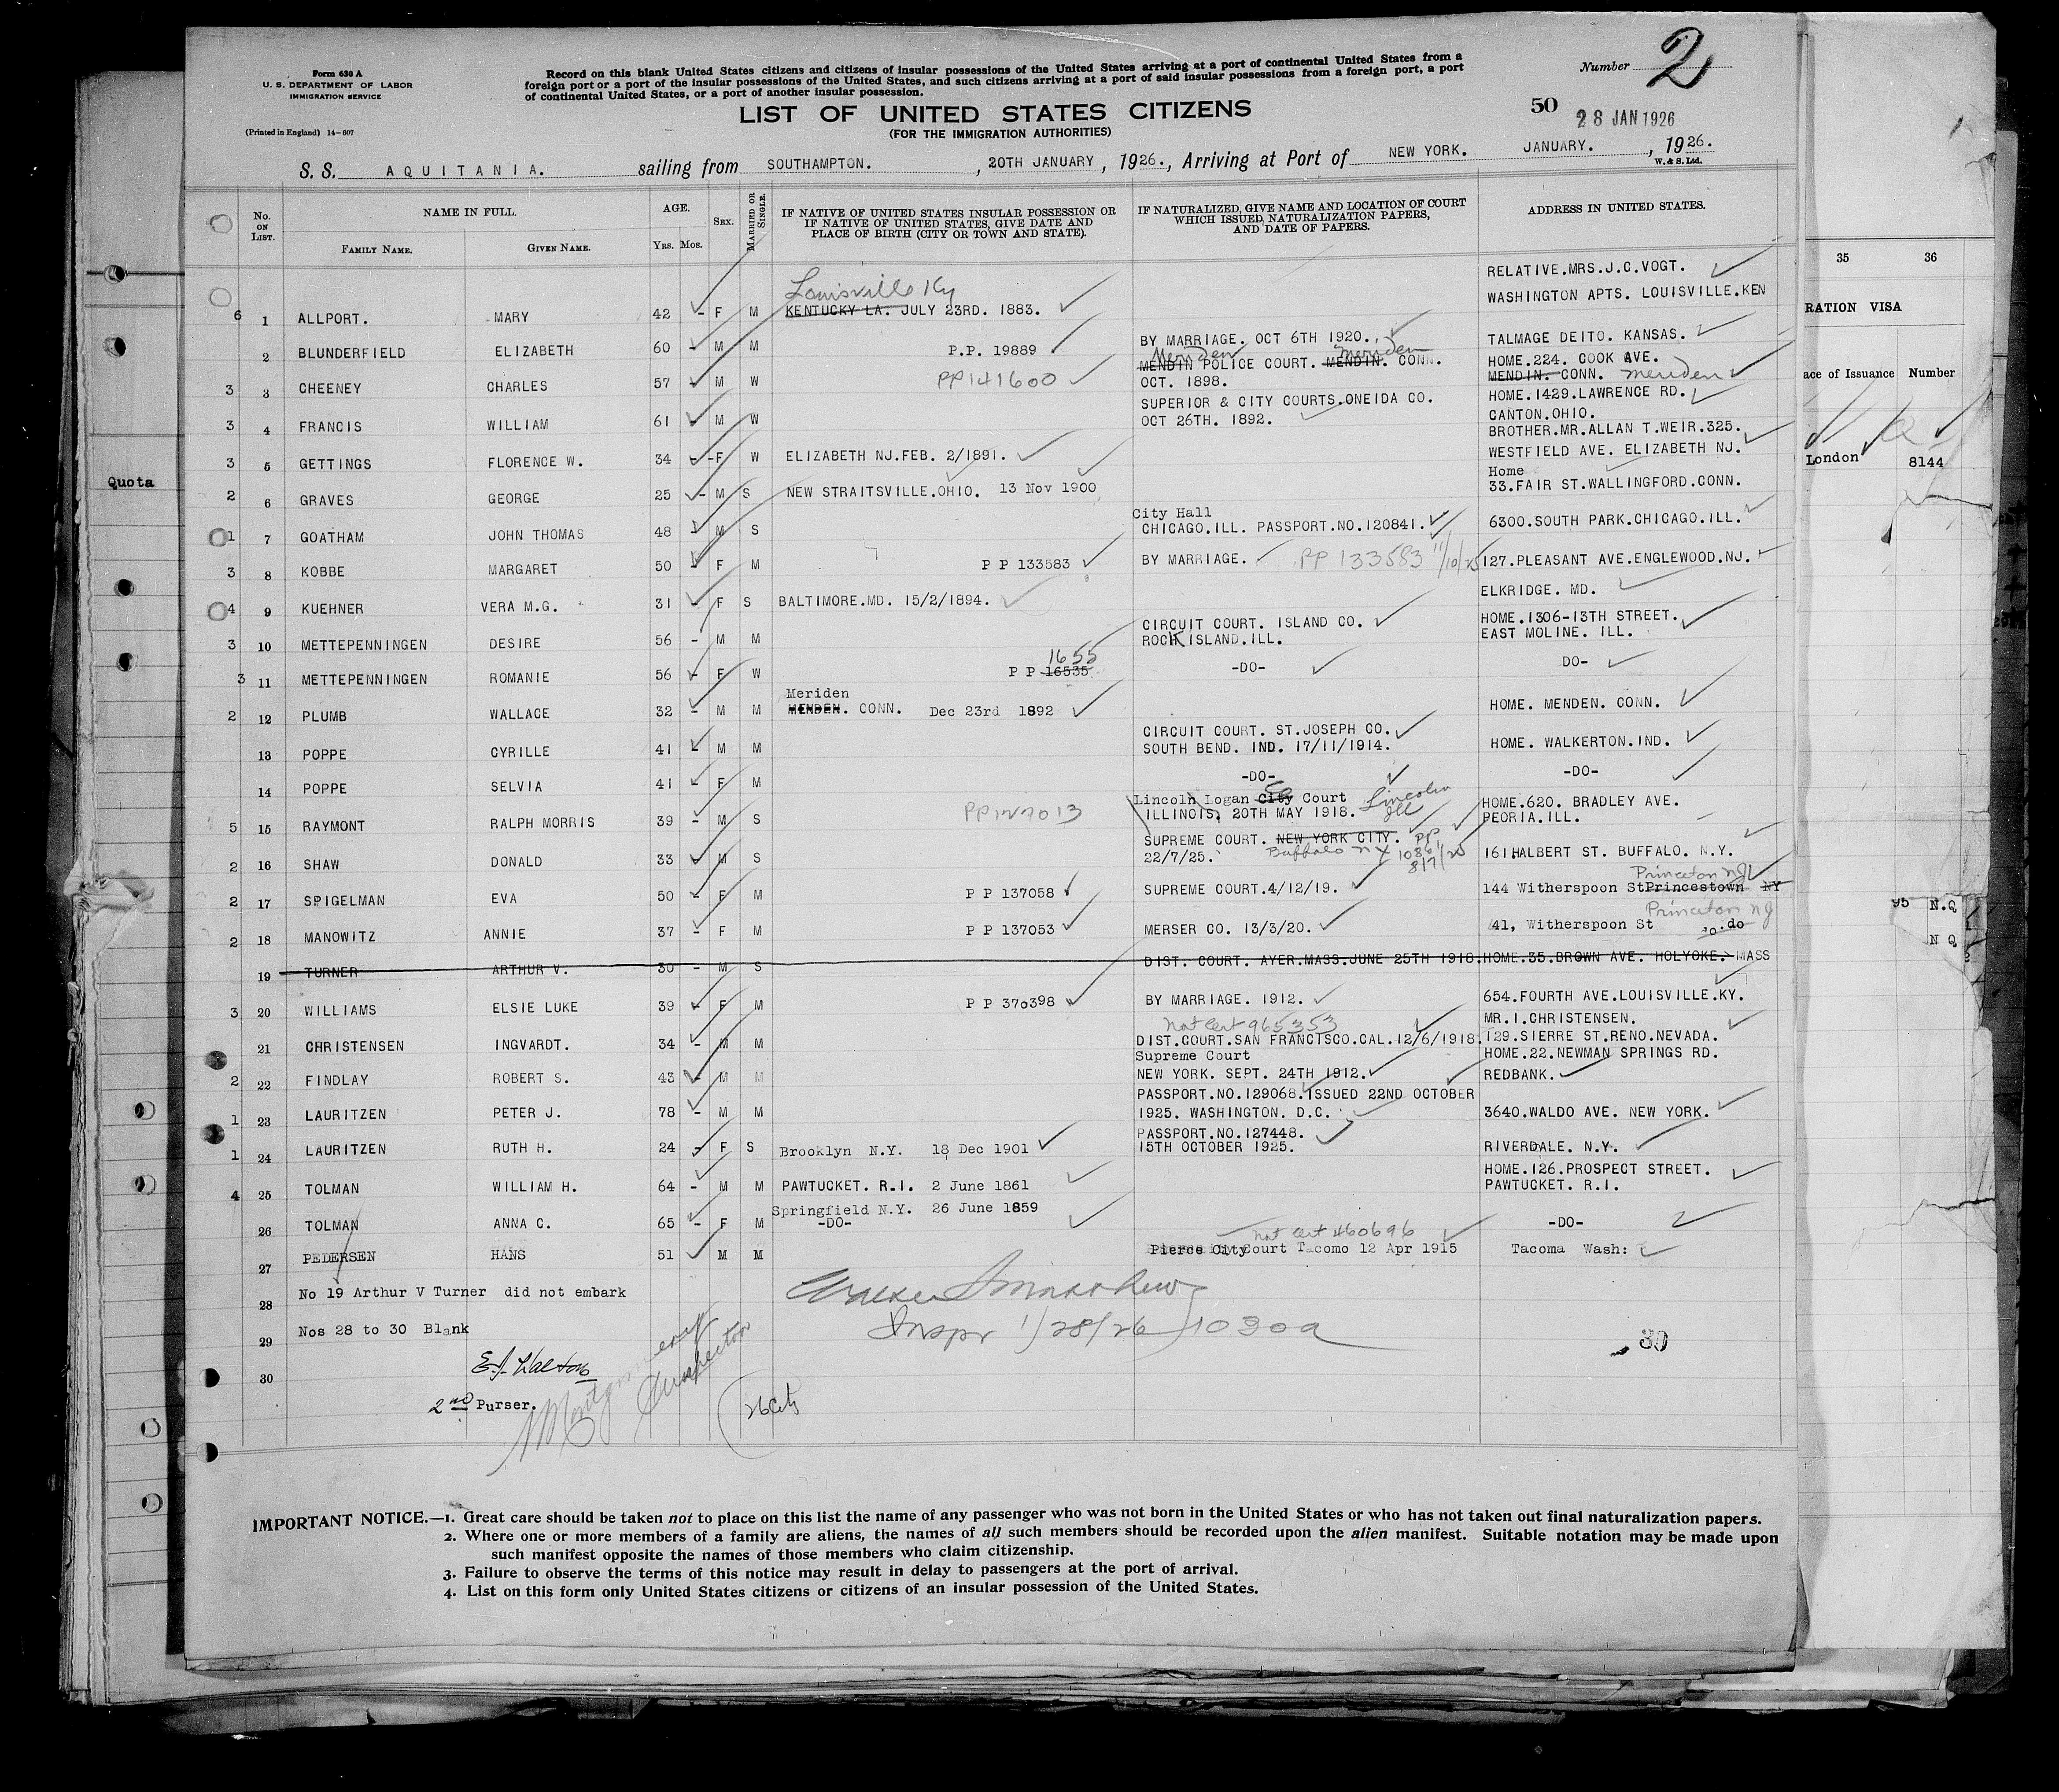 Form 630 A
U. S. DEPARTMENT OF LABOR
IMMIGRATION SERVICE
(Printed in England) 14-607
Record on this blank United States citizens and citizens of insular possessions of the United States arriving at a port of continental United States from a
foreign port or a port of the insular possessions of the United States, and such citizens arriving at a port of said insular possessions from a foreign port, a port
of continental United States, or a port of another insular possession.
Number 2
LIST OF UNITED STATES CITIZENS
(FOR THE IMMIGRATION AUTHORITIES)
50 28 JAN 1926
S. S. AQUITANIA. sailing from SOUTHAMPTON. , 20TH JANUARY , 1926., Arriving at Port of NEW YORK. JANUARY. , 1926.
W. & S. Ltd.
No. ON LIST.
NAME IN FULL.
FAMILY NAME. GIVEN NAME.
AGE.
YRS. MOS.
SEX.
MARRIED OR SINGLE.
IF NATIVE OF UNITED STATES INSULAR POSSESSION OR
IF NATIVE OF UNITED STATES, GIVE DATE AND
PLACE OF BIRTH (CITY OR TOWN AND STATE).
IF NATURALIZED, GIVE NAME AND LOCATION OF COURT
WHICH ISSUED NATURALIZATION PAPERS,
AND DATE OF PAPERS.
ADDRESS IN UNITED STATES.
RELATIVE.MRS.J.C.VOGT.
Louisville Ky WASHINGTON APTS. LOUISVILLE.KEN
6 1 ALLPORT. MARY 42 - F M KENTUCKY LA. JULY 23RD. 1883.
2 BLUNDERFIELD ELIZABETH 60 - M M P.P. 19889 BY MARRIAGE. OCT 6TH 1920. TALMAGE DEITO. KANSAS.
Meriden Meriden
MENDIN POLICE COURT. MENDIN. CONN. HOME.224. COOK AVE.
3 3 CHEENEY CHARLES 57 - M W PP141600 OCT. 1898. MENDIN. CONN. meriden
SUPERIOR & CITY COURTS.ONEIDA CO. HOME.1429.LAWRENCE RD.
3 4 FRANCIS WILLIAM 61 M W OCT 26TH. 1892. CANTON.OHIO.
BROTHER.MR.ALLAN T.WEIR.325.
3 5 GETTINGS FLORENCE W. 34 - F W ELIZABETH NJ.FEB. 2/1891. WESTFIELD AVE. ELIZABETH NJ.
Home
2 6 GRAVES GEORGE 25 - M S NEW STRAITSVILLE.OHIO. 13 Nov 1900 33.FAIR ST.WALLINGFORD.CONN.
City Hall
1 7 GOATHAM JOHN THOMAS 48 - M S CHICAGO.ILL. PASSPORT.NO.120841. 6300.SOUTH PARK.CHICAGO.ILL.
3 8 KOBBE MARGARET 50 - F M P P 133583 BY MARRIAGE. PP 133583 11/10/25 127.PLEASANT AVE.ENGLEWOOD.NJ.
4 9 KUEHNER VERA M.G. 31 - F S BALTIMORE.MD. 15/2/1894. ELKRIDGE. MD.
CIRCUIT COURT. ISLAND CO. HOME.1306-13TH STREET.
3 10 METTEPENNINGEN DESIRE 56 - M M ROCK ISLAND.ILL. EAST MOLINE. ILL.
1655
3 11 METTEPENNINGEN ROMANIE 56 - F W P P 16535 -DO- DO-
Meriden
2 12 PLUMB WALLACE 32 - M M MENDEN. CONN. Dec 23rd 1892 HOME. MENDEN. CONN.
CIRCUIT COURT. ST.JOSEPH CO.
13 POPPE CYRILLE 41 - M M SOUTH BEND. IND. 17/11/1914. HOME. WALKERTON.IND.
14 POPPE SELVIA 41 - F M -DO- -DO-
Lincoln Logan City Co Court Lincoln Ill HOME.620. BRADLEY AVE.
5 15 RAYMONT RALPH MORRIS 39 - M S ILLINOIS, 20TH MAY 1918. PEORIA.ILL.
SUPREME COURT. NEW YORK CITY. PP
2 16 SHAW DONALD 33 - M S 22/7/25. Buffalo NY 8/7/25 161HALBERT ST. BUFFALO. N.Y.
Princeton NJ
2 17 SPIGELMAN EVA 50 - F M P P 137058 SUPREME COURT.4/12/19. 144 Witherspoon StPrincestown NY
Princeton NJ
2 18 MANOWITZ ANNIE 37 - F M P P 137053 MERSER CO. 13/3/20. 41, Witherspoon St do
19 TURNER ARTHUR V. 30 - M S DIST. COURT. AYER.MASS.JUNE 25TH 1918. HOME.35.BROWN AVE. HOLYOKE. MASS
3 20 WILLIAMS ELSIE LUKE 39 - F M P P 370398 BY MARRIAGE. 1912. 654.FOURTH AVE.LOUISVILLE.KY.
Nat Cert 965353 MR.I.CHRISTENSEN.
21 CHRISTENSEN INGVARDT. 34 - M M DIST.COURT.SAN FRANCISCO.CAL.12/6/1918. 129.SIERRE ST.RENO.NEVADA.
Supreme Court HOME.22.NEWMAN SPRINGS RD.
2 22 FINDLAY ROBERT S. 43 - M M NEW YORK. SEPT. 24TH 1912. REDBANK.
PASSPORT.NO.129068.ISSUED 22ND OCTOBER
1 23 LAURITZEN PETER J. 78 - M M 1925. WASHINGTON. D.C. 3640.WALDO AVE. NEW YORK.
PASSPORT.NO.127448.
1 24 LAURITZEN RUTH H. 24 - F S Brooklyn N.Y. 18 Dec 1901 15TH OCTOBER 1925. RIVERDALE. N.Y.
HOME.126.PROSPECT STREET.
4 25 TOLMAN WILLIAM H. 64 - M M PAWTUCKET. R.I. 2 June 1861 PAWTUCKET. R.I.
Springfield N.Y. 26 June 1859
26 TOLMAN ANNA C. 65 - F M -DO- -DO-
Nat Cert 460696
27 PEDERSEN HANS 51 M M Pierce City Court Tacomo 12 Apr 1915 Tacoma Wash:
28 No 19 Arthur V Turner did not embark
29 Nos 28 to 30 Blank
Inspr 1/28/26 1030a
39
30
E.J. Walton
2nd Purser.
Montgomery
Inspector
26 Cits
IMPORTANT NOTICE.—1. Great care should be taken not to place on this list the name of any passenger who was not born in the United States or who has not taken out final naturalization papers.
2. Where one or more members of a family are aliens, the names of all such members should be recorded upon the alien manifest. Suitable notation may be made upon
such manifest opposite the names of those members who claim citizenship.
3. Failure to observe the terms of this notice may result in delay to passengers at the port of arrival.
4. List on this form only United States citizens or citizens of an insular possession of the United States.
Quota
35 36
RATION VISA
ace of Issuance Number
London 8144
95 N.Q
N Q